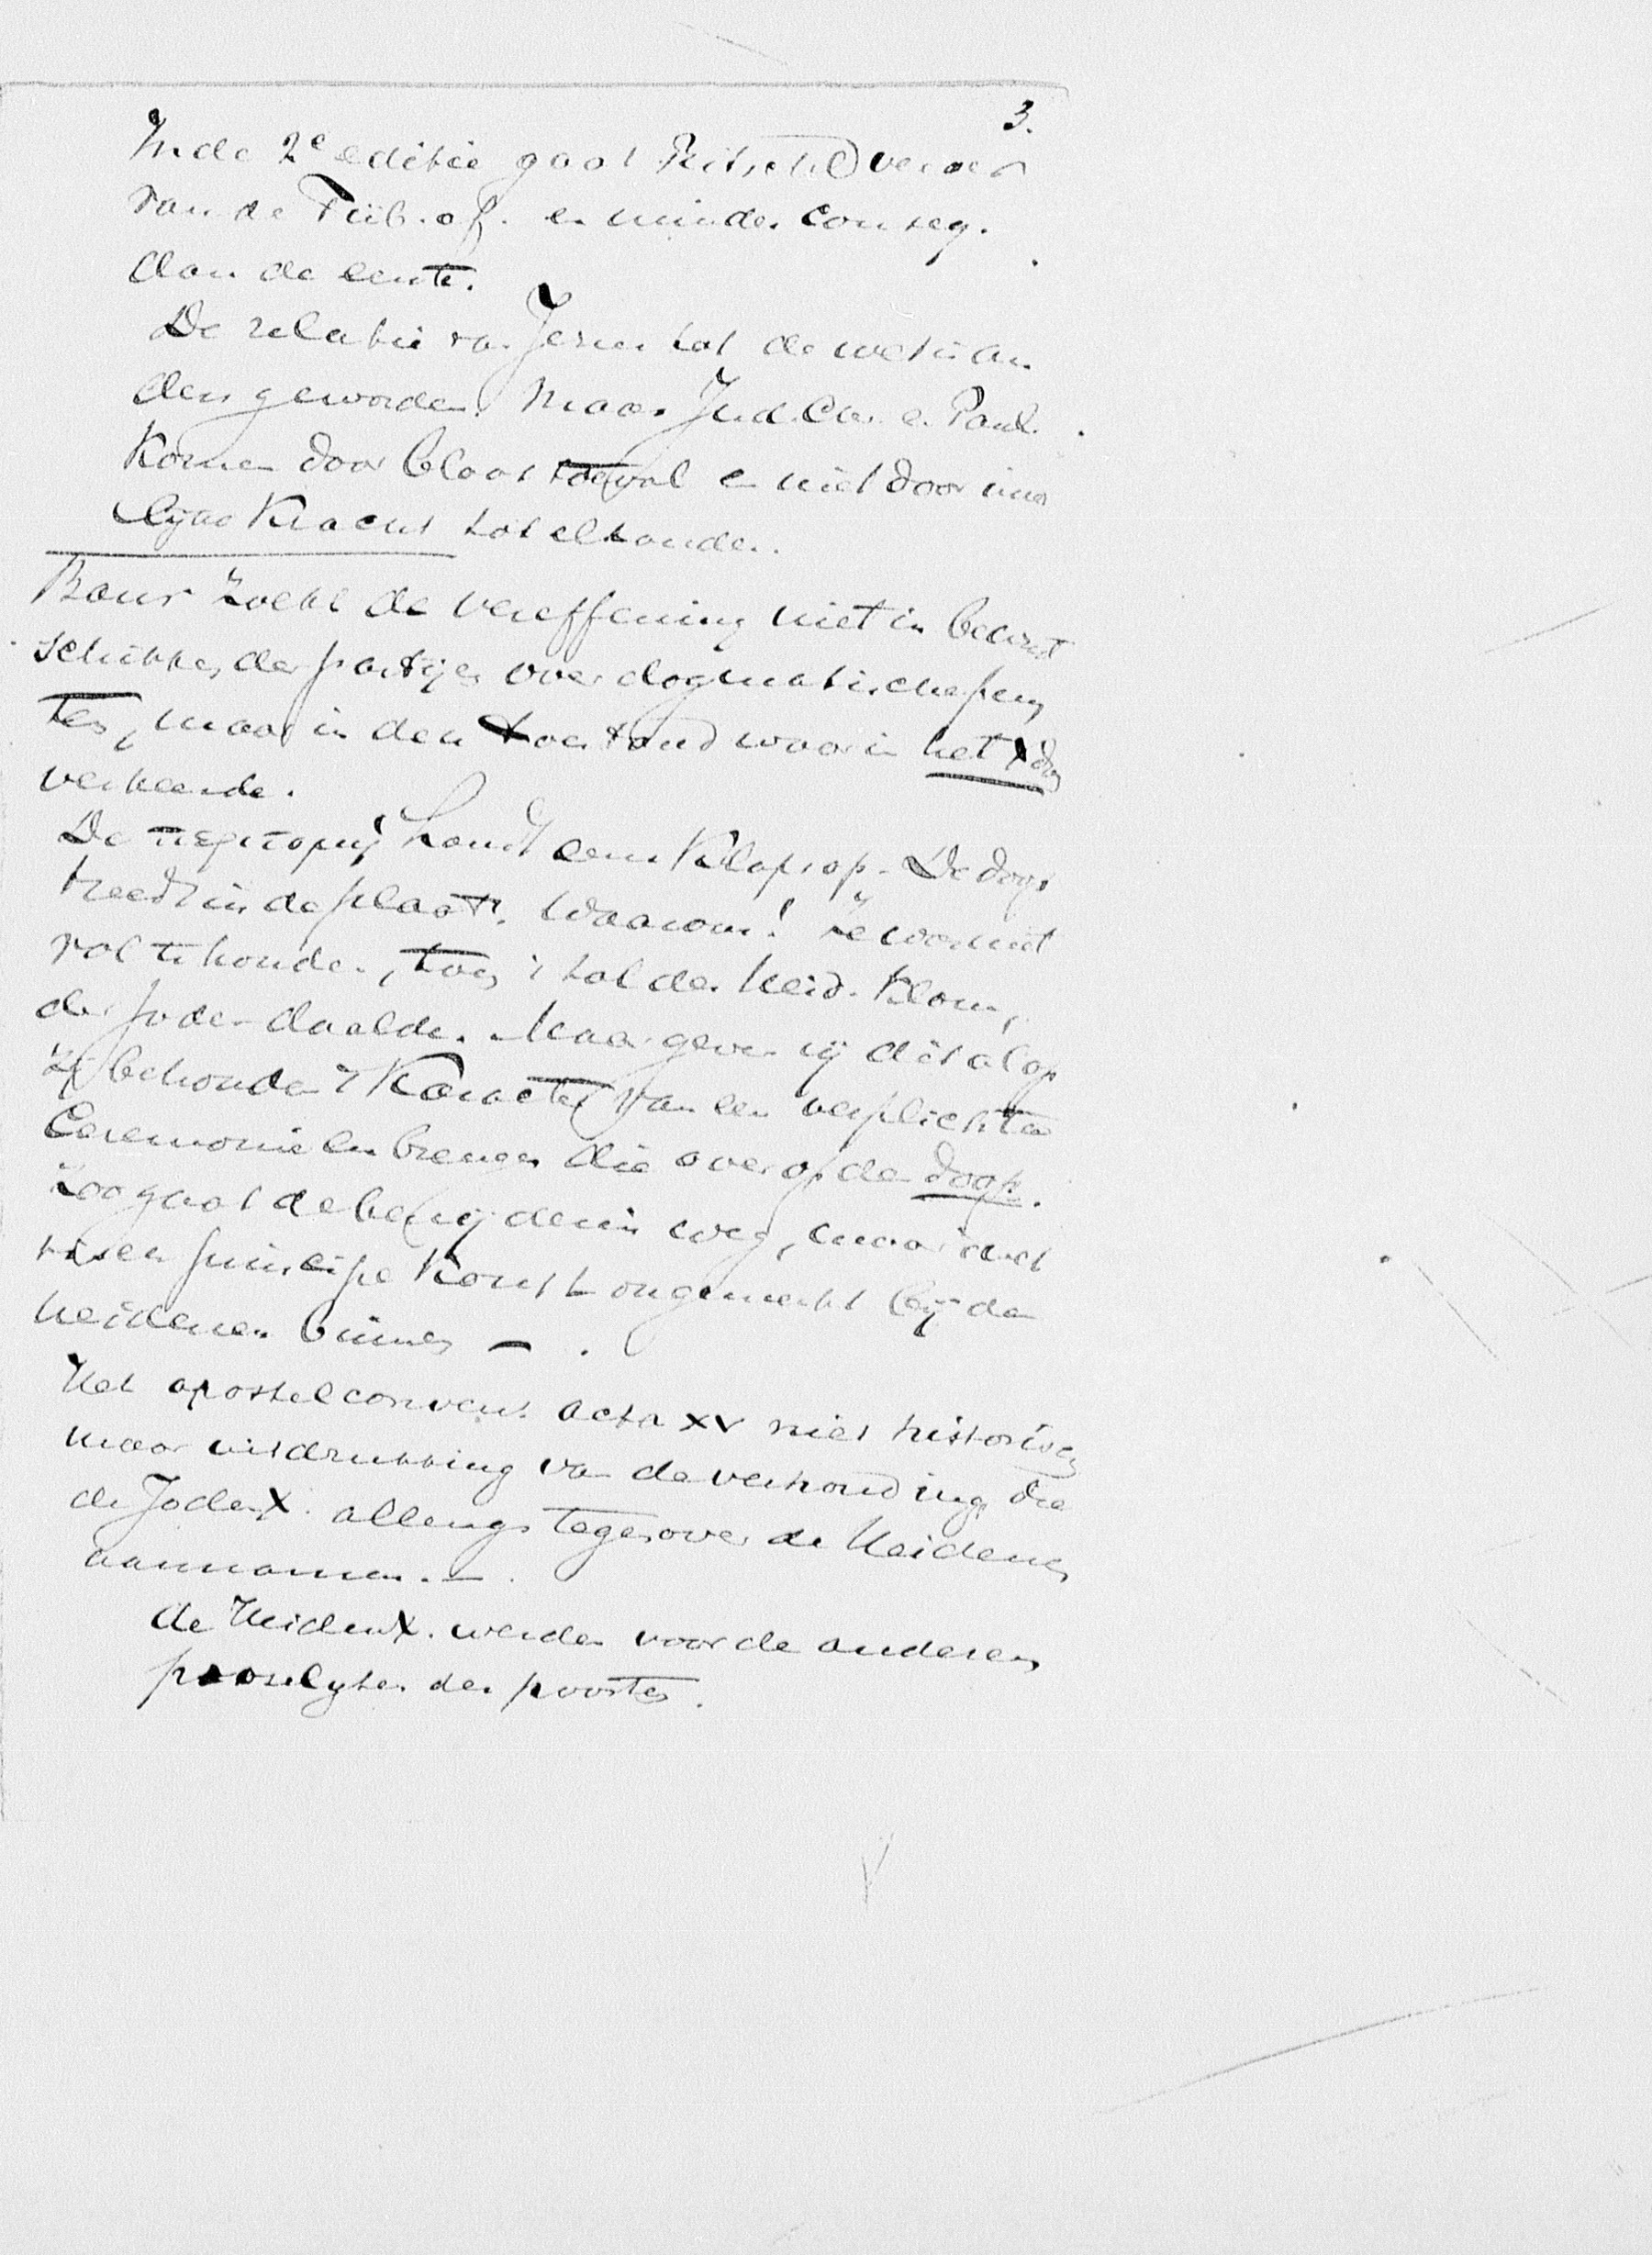 3.
In de 2e editie gaat Ritschl verder
van de Tüb. af. en minder conseq.
dan de eerste.
De relatie van Jezus tot de wet is an
ders geworden. Maar Jud. Chr. en Paul.
Komen door bloot toeval en niet door inner
lijke Kracht tot elkander.
Baur zoekt de vereffening niet in
schikken der partijen over dogmatische pun
ten, maar in den toestand waarin het Xdom
verkeerde.
De περιτομη houdt eens Klaps op. De doop
treedt in de plaats. Waarom? Ze was niet
vol te houden, toen 't tal der Heid. Klom,
der Joden daalde. Maar geven zij dit al op
zij behouden 't Karacter van een verplichte
Ceremonie en brengen die over op den doop.
Zoo gaat de besnijdenis weg, maar met
een principe Komt ongemerkt bij de
heidenen binnen — .
Het apostelconvent acta XV niet historisch
maar uitdrukking van de verhouding die
de JodenX. allengs tegenover de Heidenen
aannamen. —
de HeidenX. werden voor de anderen
proselyten der poorten.